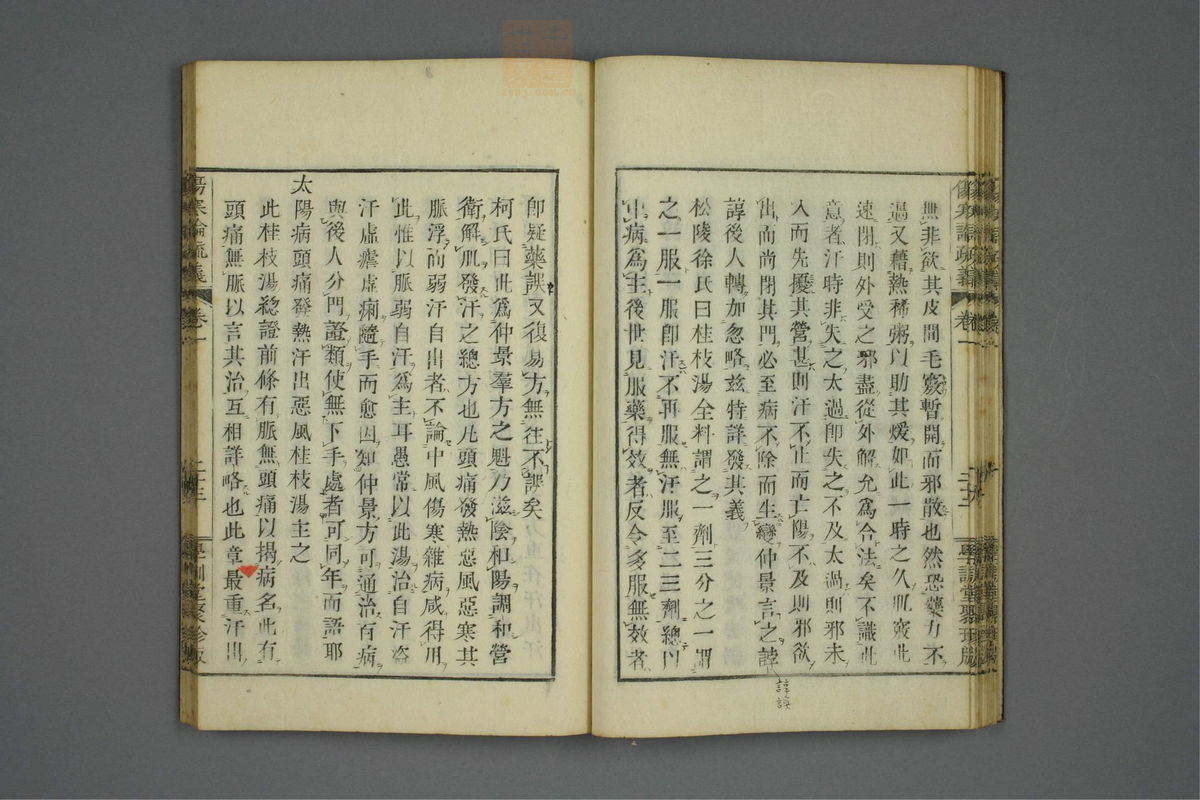 無非欲其皮間毛竅暫開而邪散也然恐藥力不
過又藉熱稀粥以助其煖如此一時之久肌竅此
速閉則外受之邪盡從外解允爲合法矣不識此
意者汗時非失之太過卽失之不及太過則邪未
入而先擾其營甚則汗不止而亡陽不及則邪欲
出而尚閉其門必至病不除而生變仲景言之諄
諄後人轉加忽略茲特詳發其義
松陵徐氏曰桂枝湯全料謂之一劑三分之一謂
之一服一服卽汗不再服無汗服至二三劑總以
中病爲主後世見服藥得效者反令多服無效者
諄誤
傷寒論疏義
卷一
卽疑藥誤又復易方無往不誤矣
柯氏曰此爲仲景羣方之魁乃滋陰和陽調和營
衛解肌發汗之總方也凡頭痛發熱惡風惡寒其
脈浮而弱汗自出者不論中風傷寒雜病咸得用
此惟以脈弱自汗爲主耳愚常以此湯治自汗盜
汗虛瘧虛痢隨手而愈因知仲景方可通治百病
與後人分門證類使無下手處者可同年而語耶
太陽病頭痛發熱汗出惡風桂枝湯主之
此桂枝湯總證前條有脈無頭痛以揭病名此有
頭痛無脈以言其治互相詳略也此章最重汗出
傷寒論疏義
卷一
二十三